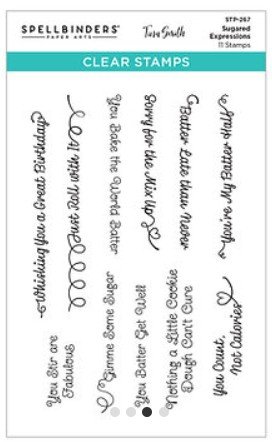 SPELLBINDERS
PAPER ARTS
Tina Smith
STP-267
Sugared
Expressions
11 Stamps
CLEAR STAMPS
Whisking You a Great Birthday
Just Roll with It
You Bake the World Batter
Sorry for the Mix Up
Batter Late than Never
You're My Batter Half
You Stir are
Fabulous
Gimme Some Sugar
You Batter Get Well
Nothing a Little Cookie
Dough Can't Cure
You Count,
Not Calories